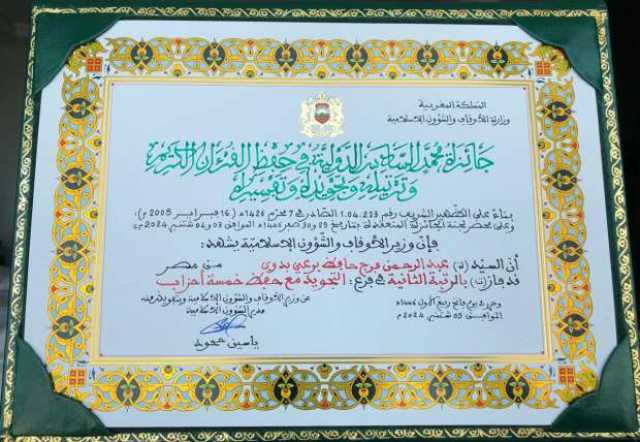 المملكة المغربية
وزارة الأوقاف والشؤون الإسلامية
جائزة محمد السادس الدولية في حفظ القرءان الكريم
وترتيله وتجويده وتفسيره
بناء على الظهير الشريف رقم 1.04.223 الصادر في 7 محرم 1426ه (16 فبراير 2005 م)،
وعلى محضر لجنة الجائزة المنعقدة بتاريخ 29 و30 صفر 1446ه الموافق 03 و04 شتنبر 2024م
فإن وزير الأوقاف والشؤون الإسلامية يشهد:
أن السيد (ة) عبد الرحمن فرج حافظ برعي بدوي من مصر
قد فاز(ت) بالرتبة الثانية في فرع: التجويد مع حفظ خمسة أحزاب
وحرر يوم فاتح ربيع الأول 1446ه
الموافق 05 شتنبر 2024م
عن وزير الأوقاف والشؤون الإسلامية وبتفويض منه
مدير الشؤون الإسلامية
ياسين